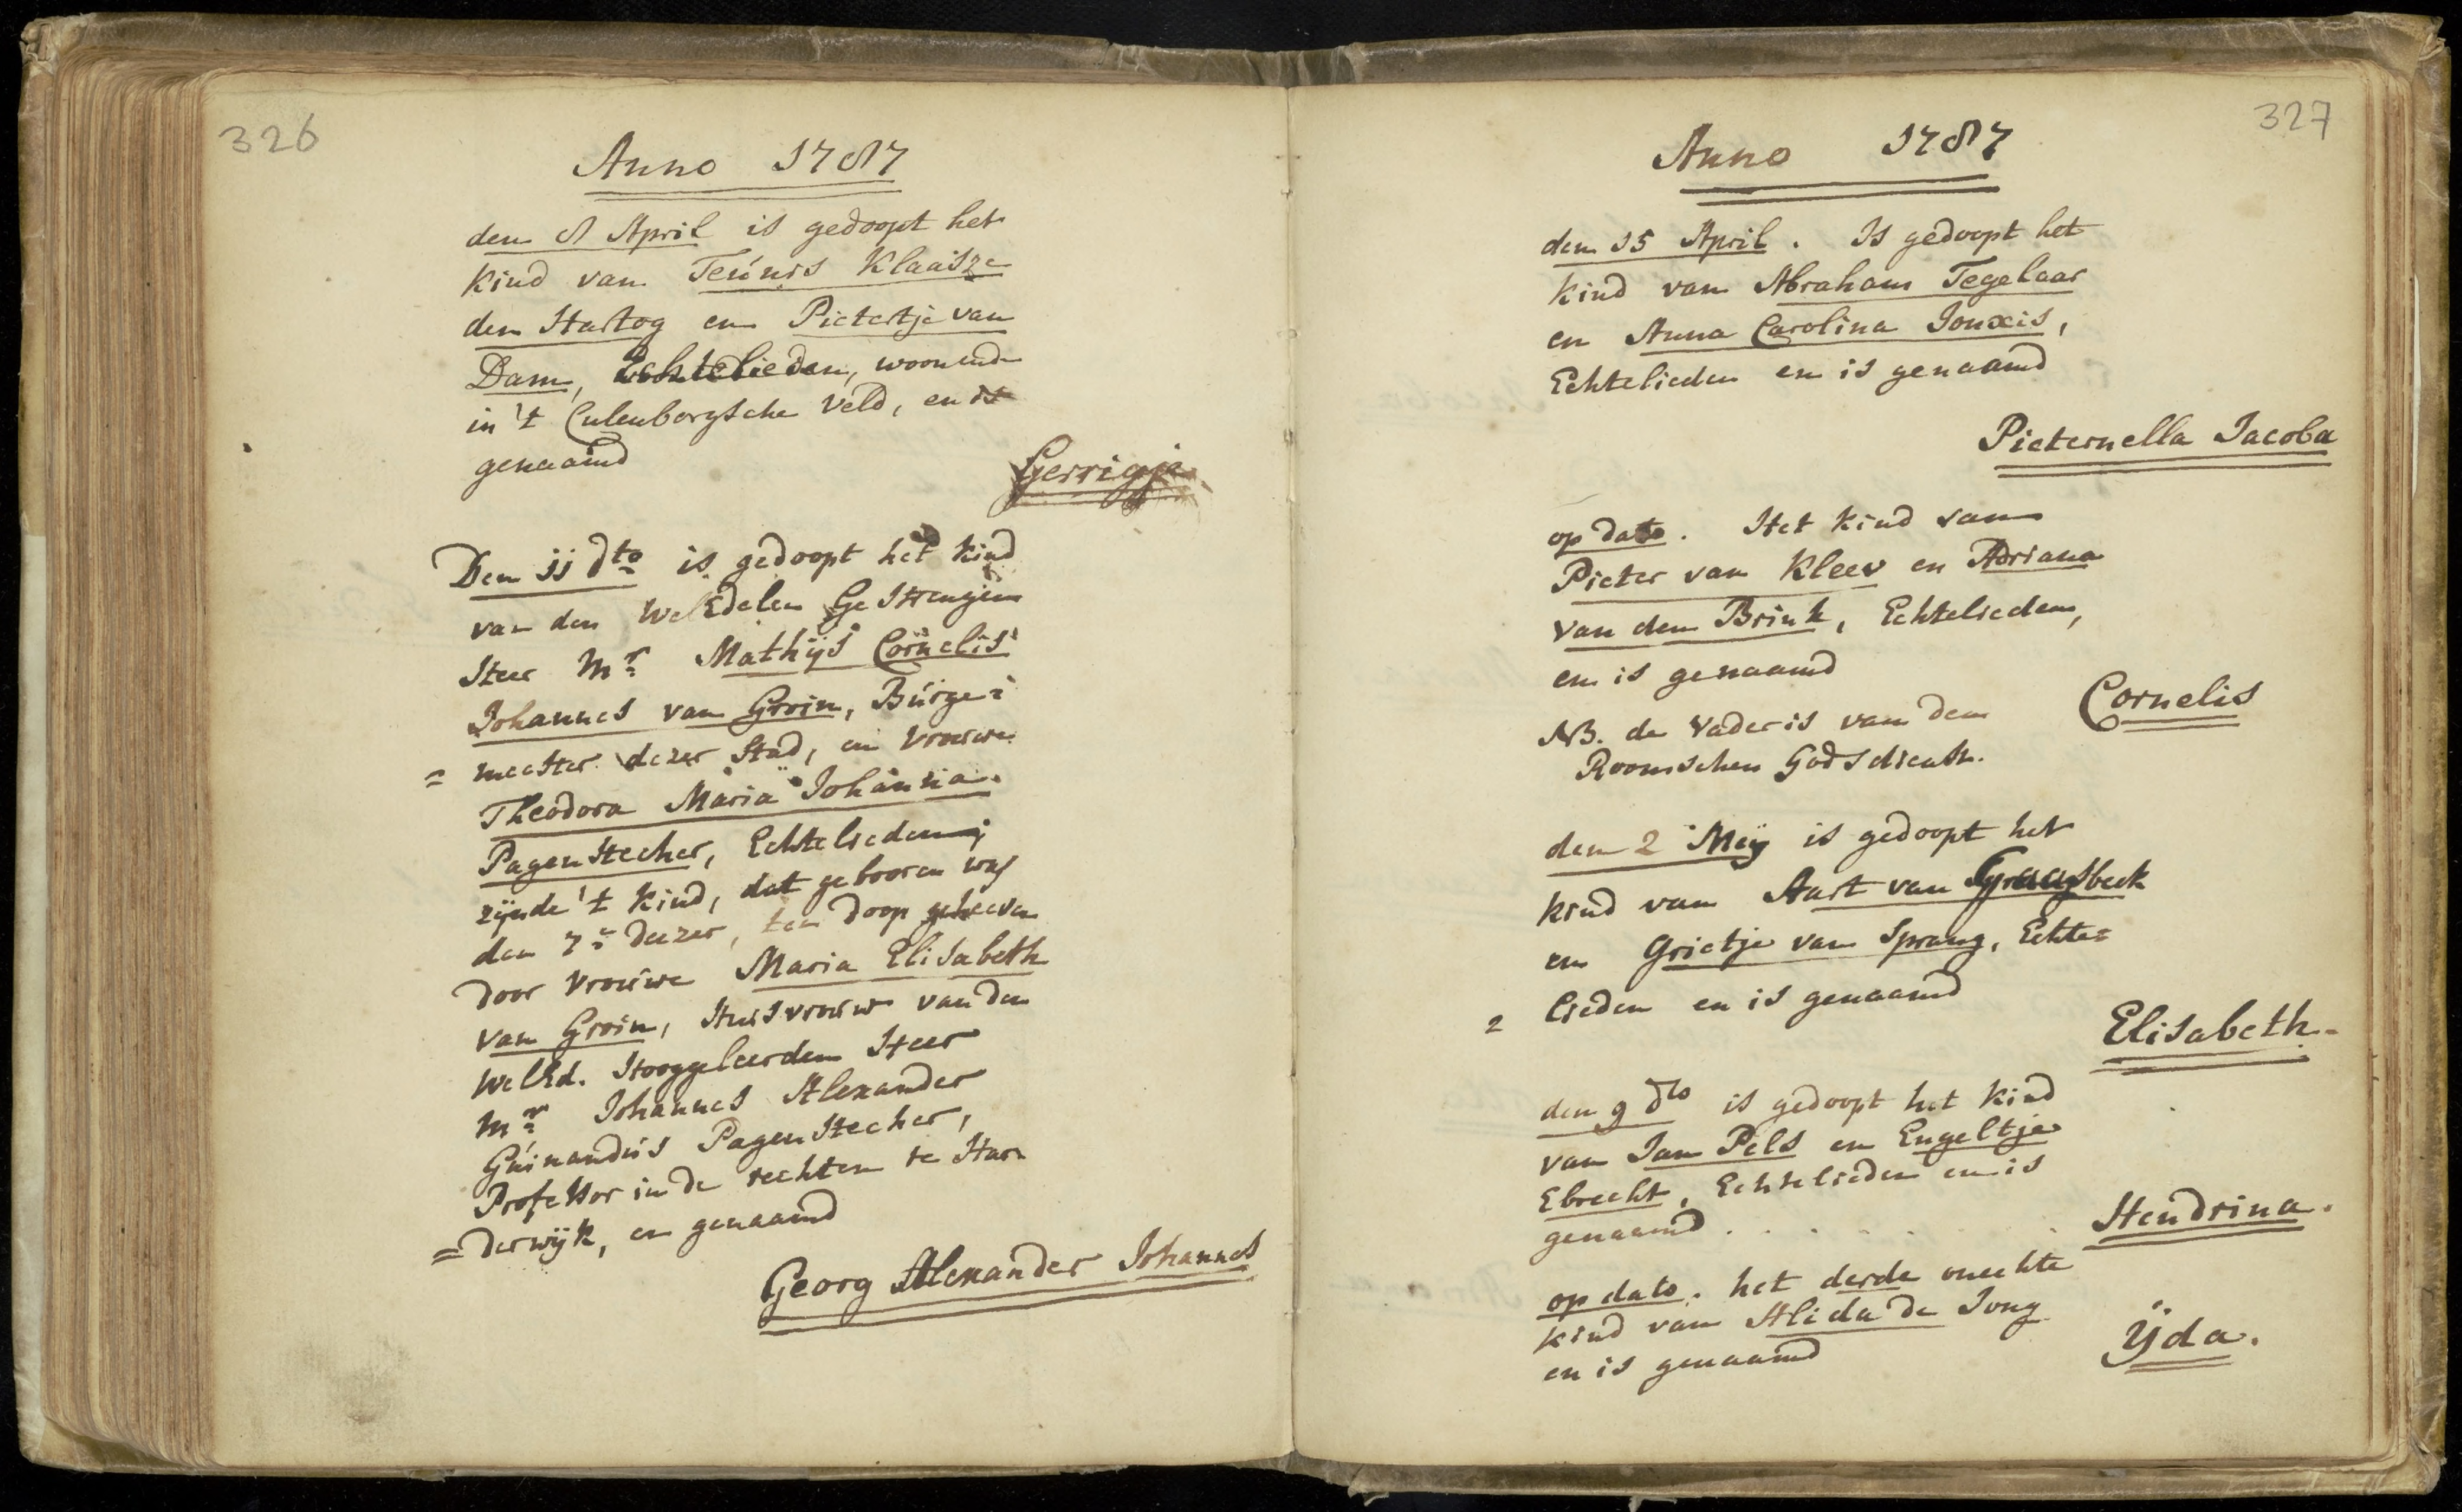 326
Anno 1787
den 8 April is gedoopt het
kind van Teúnis Klaasze
den Hartog en Pietertje van
Dam, Echtelieden, woonende
in 't Culenborgsche Veld, en is
genaamd
Gerrigje
Den 11 dto is gedoopt het kind
van den WelEdelen GeStrengen
Heer Mr Mathijs Cornelis
Johannes van Groin, Búrge=
= meester dezer Stad, en Vrouwe
Theodora Maria Johanna
Pagenstecher, Echtelieden;
zijnde 't kind, dat gebooren was
den 7e deezer, ten doop geheeven
door Vrouwe Maria Elisabeth
van Groin, Huisvrouw van den
WelEd. Hooggeleerden Heer
Mr Johannes Alexander
Gúinandús Pagenstecher,
Professor in de rechten te Har=
= derwijk, en genaamd
Georg Alexander Johannes
327
Anno 1787
den 15 April. Is gedoopt het
kind van Abraham Tegelaar
en Anna Carolina Jonxis,
Echtelieden en is genaamd
Pieternella Jacoba
op dato. Het kind van
Pieter van Kleev en Adriana
van den Brink, Echtelieden,
en is genaamd
Cornelis
NB. de Vader is van den
Roomschen Godsdienst.
den 2 Meij is gedoopt het
kind van Aart van
en Grietje van Sprang, Echte=
= lieden en is genaamd
Elisabeth
den 9 dto is gedoopt het kind
van Jan Pels en Engeltje
Ebrecht, Echtelieden en is
genaamd . . . . . .
Hendrina.
op dato. het derde onechte
kind van Alida de Jong
en is genaamd
Ÿda.